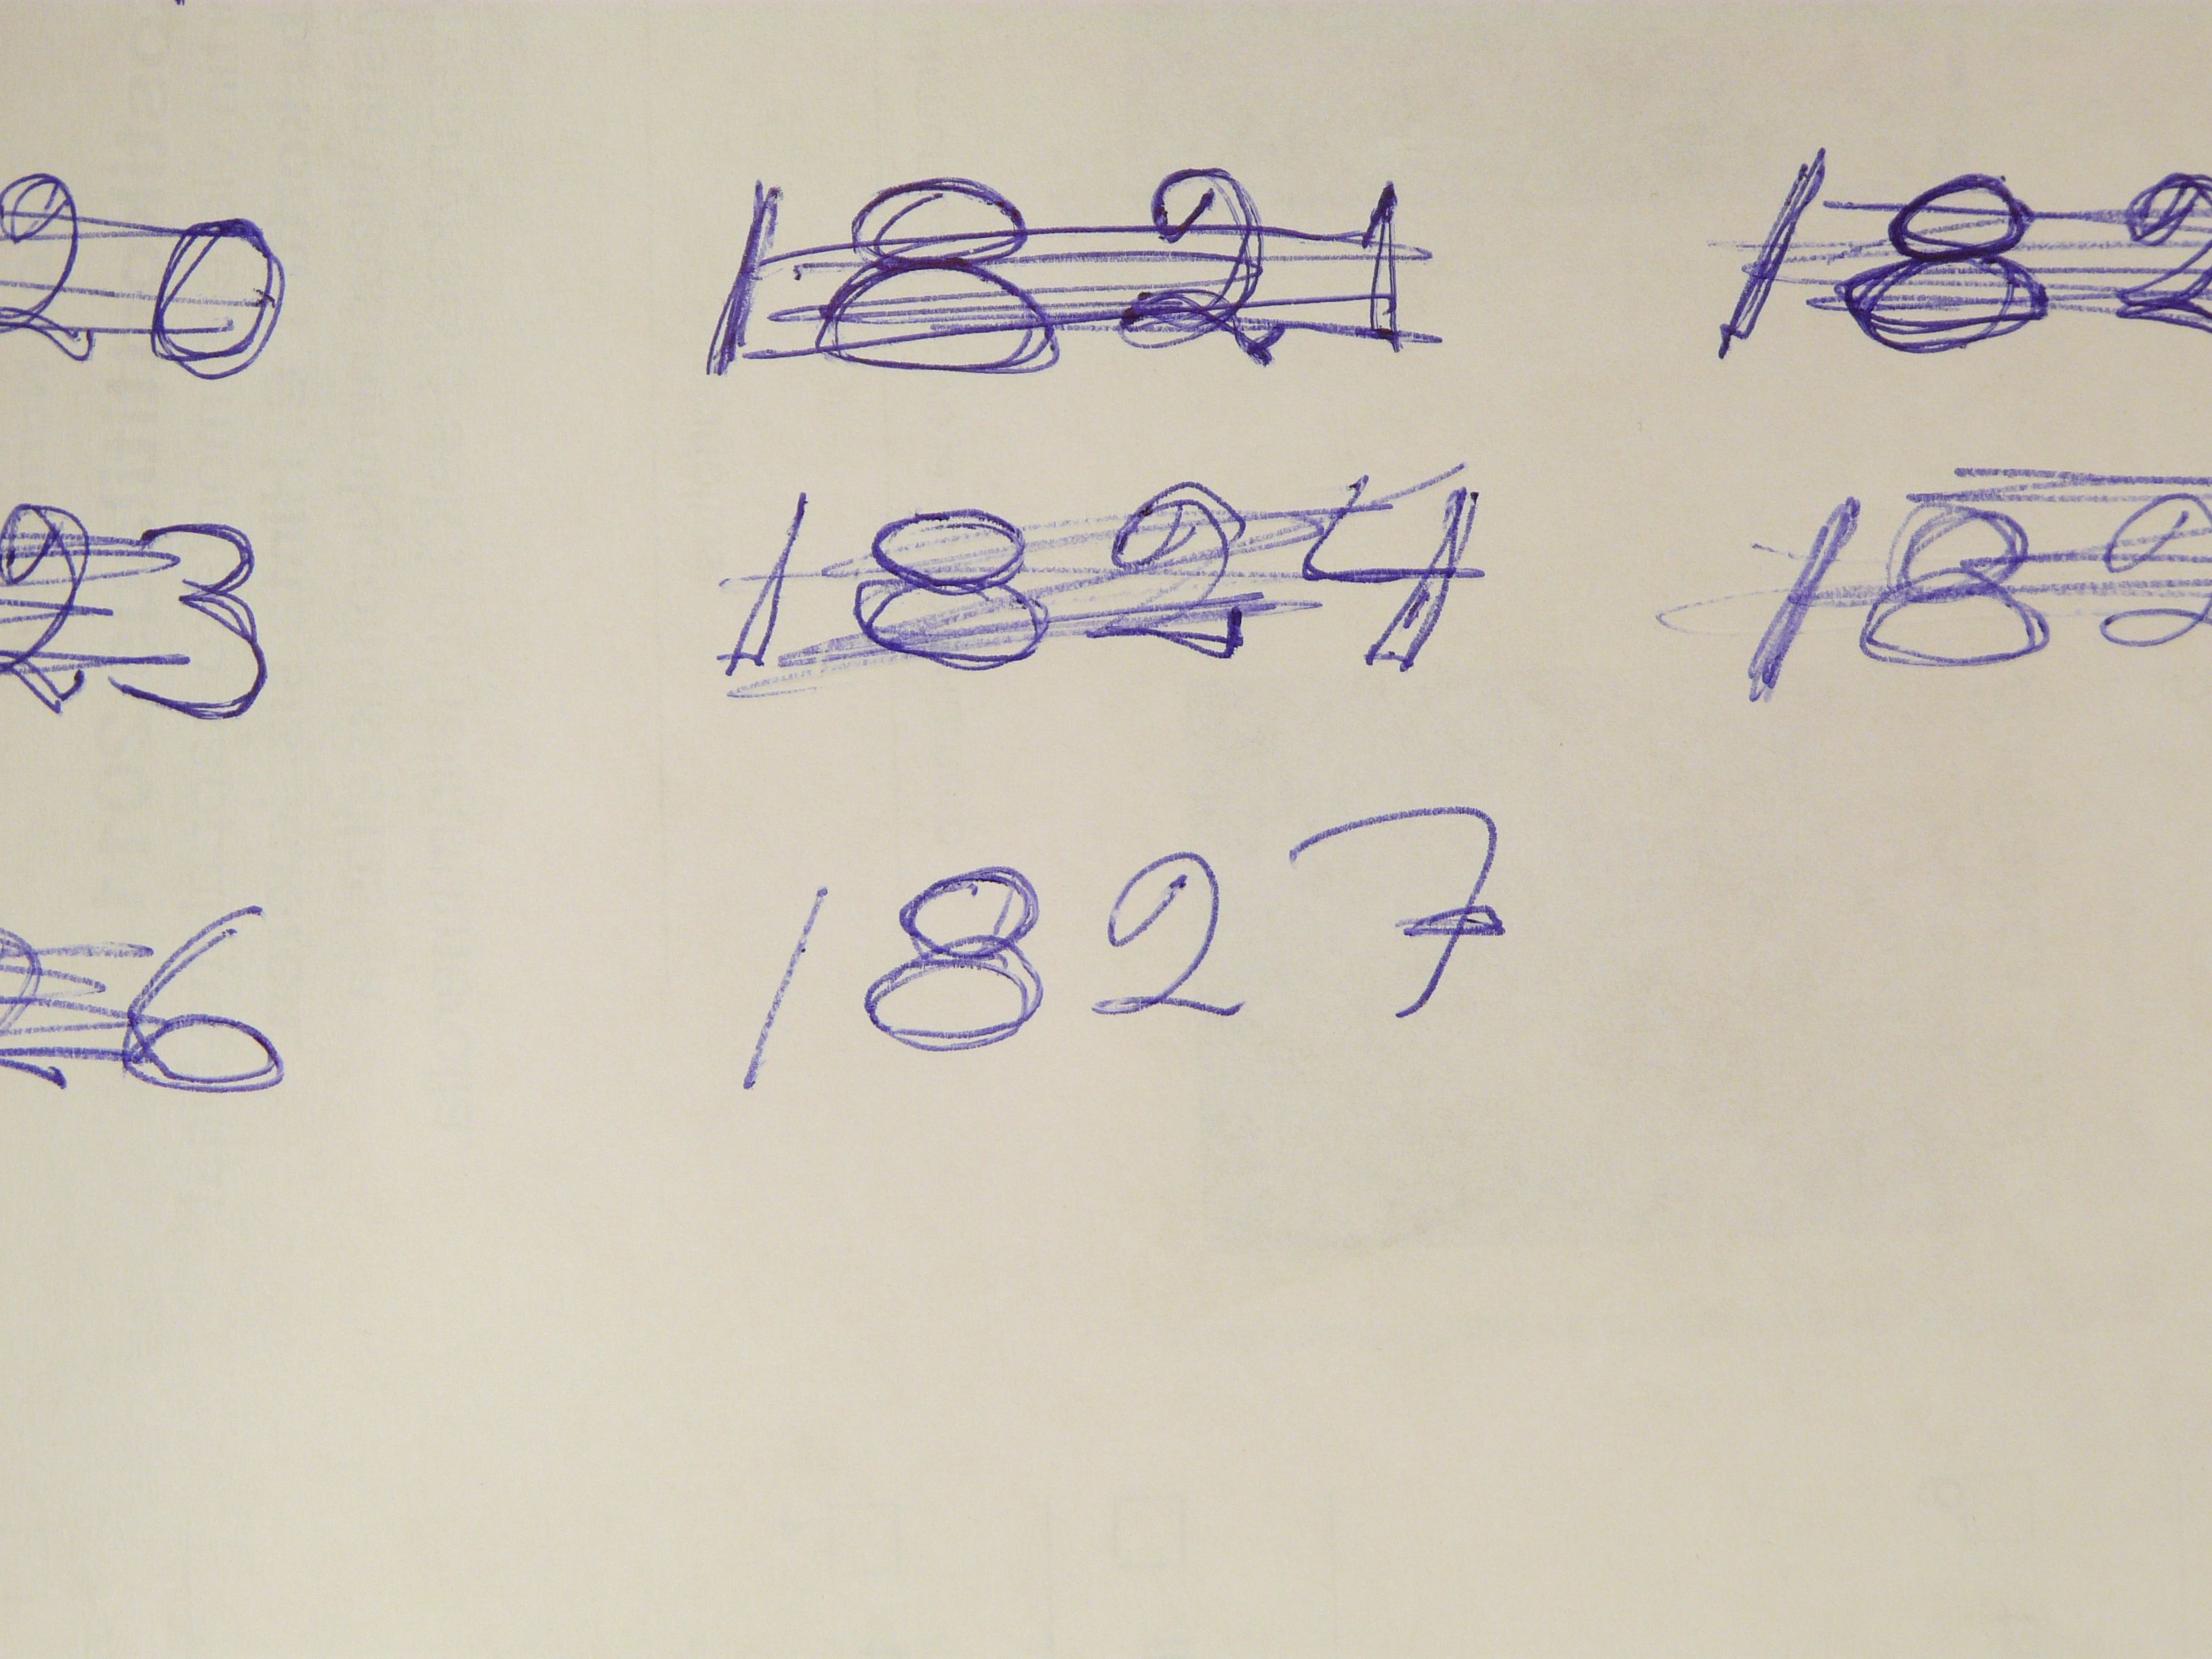 20 1821 182
23 1824 182
26 1827